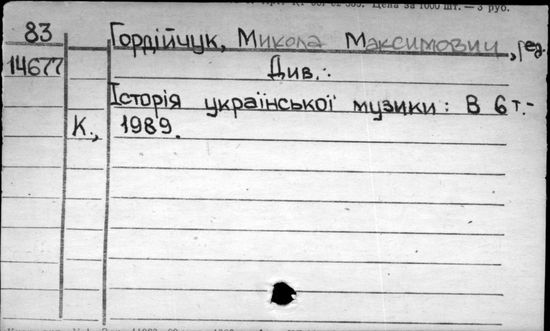 Цена за 1000 шт. — 3 руб.
83 Гордійчук, Микола Максимович, ред.
14677 Див.:
Історія української музики: В 6 т.-
К., 1989.